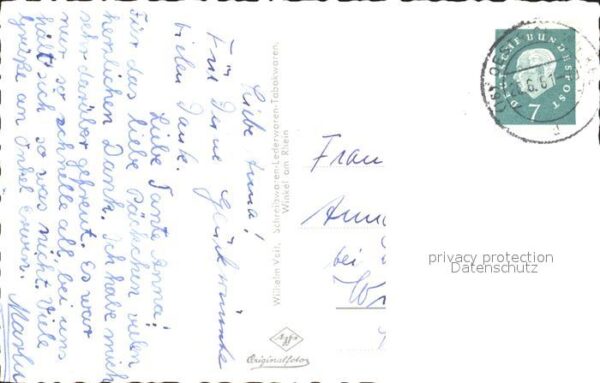 Liebe Anna!
Für Deine Glückwünsche
vielen Dank.
Liebe Tante Anna!
Für das liebe Päckchen vielen
herzlichen Dank. Ich habe mich
sehr darüber gefreut. Es war
nur so schnelle all, bei uns
hält sich so was nicht. Viele
Grüße an Onkel Erwin. Marlu
Wilhelm Veit, Schreibwaren-Lederwaren-Tabakwaren,
Winkel am Rhein
Agfa
Originalfoto
Frau
Anna
bei
DEUTSCHE BUNDESPOST
7
6.61
privacy protection
Datenschutz